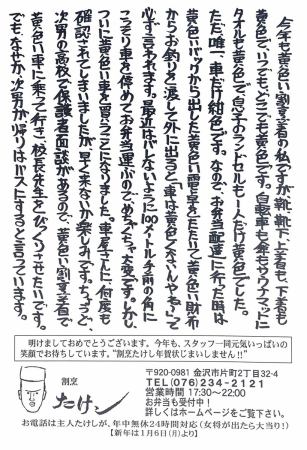 今年も黄色い割烹着の私ですが、靴、靴下、上着も、下着も
黄色で、いつでも、どこでも黄色です。自転車も傘もサウナマットに
タオルも黄色で、息子のランドセルも一人だけ黄色でした。
ただ唯一、車だけ紺色です。なので、お弁当配達に行った時は、
黄色いバックから出した黄色い電卓をたたいて黄色い財布
からお釣りを渡して外に出ると「車は黄色くないんやね〜」って
必ず言われます。最近はバレないように100メートル手前の角に
こっそり車を停めてお弁当運ぶので、めっちゃ大変です。しかし、
ついに黄色い車を買うことになりました。車屋さんに何度も
確認されてしまいましたが、早く来ないか楽しみです。ちょうど、
次男の高校で保護者面談があるので、黄色い割烹着で
黄色い車に乗って行き、校長先生をびっくりさせたいです。
でも、なぜか、次男が帰りはバスにすると言っています。
明けましておめでとうございます。今年も、スタッフ一同元気いっぱいの
笑顔でお待ちしています。“割烹たけし年賀状じまいしません!!”
割烹
たけし
〒920-0981 金沢市片町2丁目32-4
TEL(076)234-2121
営業時間 17:30〜22:00
お弁当も受付中!
詳しくはホームページをご覧下さい。
お電話は主人たけしが、年中無休24時間対応(女将が出たら大当り!)
【新年は1月6日(月)より】